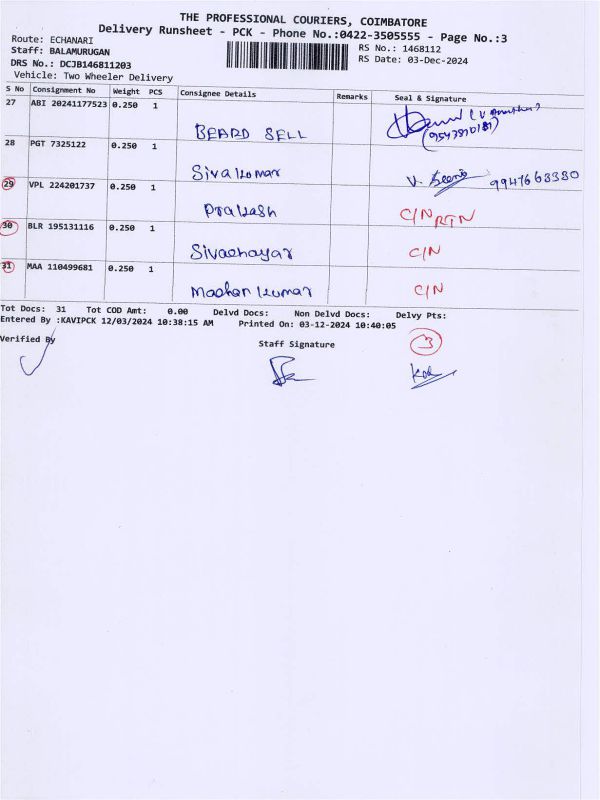 THE PROFESSIONAL COURIERS, COIMBATORE
Delivery Runsheet - PCK - Phone No.:0422-3505555 - Page No.:3
Route: ECHANARI
Staff: BALAMURUGAN
DRS No.: DCJB146811203
Vehicle: Two Wheeler Delivery
RS No.: 1468112
RS Date: 03-Dec-2024
S No Consignment No Weight PCS Consignee Details Remarks Seal & Signature
27 ABI 20241177523 0.250 1 BEARD SELL
28 PGT 7325122 0.250 1 Sivakumar 9947663330
29 VPL 224201737 0.250 1 Prakash C/N RTN
30 BLR 195131116 0.250 1 C/N
31 MAA 110499681 0.250 1 C/N
Tot Docs: 31 Tot COD Amt: 0.00 Delvd Docs: Non Delvd Docs: Delvy Pts:
Entered By :KAVIPCK 12/03/2024 10:38:15 AM Printed On: 03-12-2024 10:40:05
Verified By Staff Signature 3